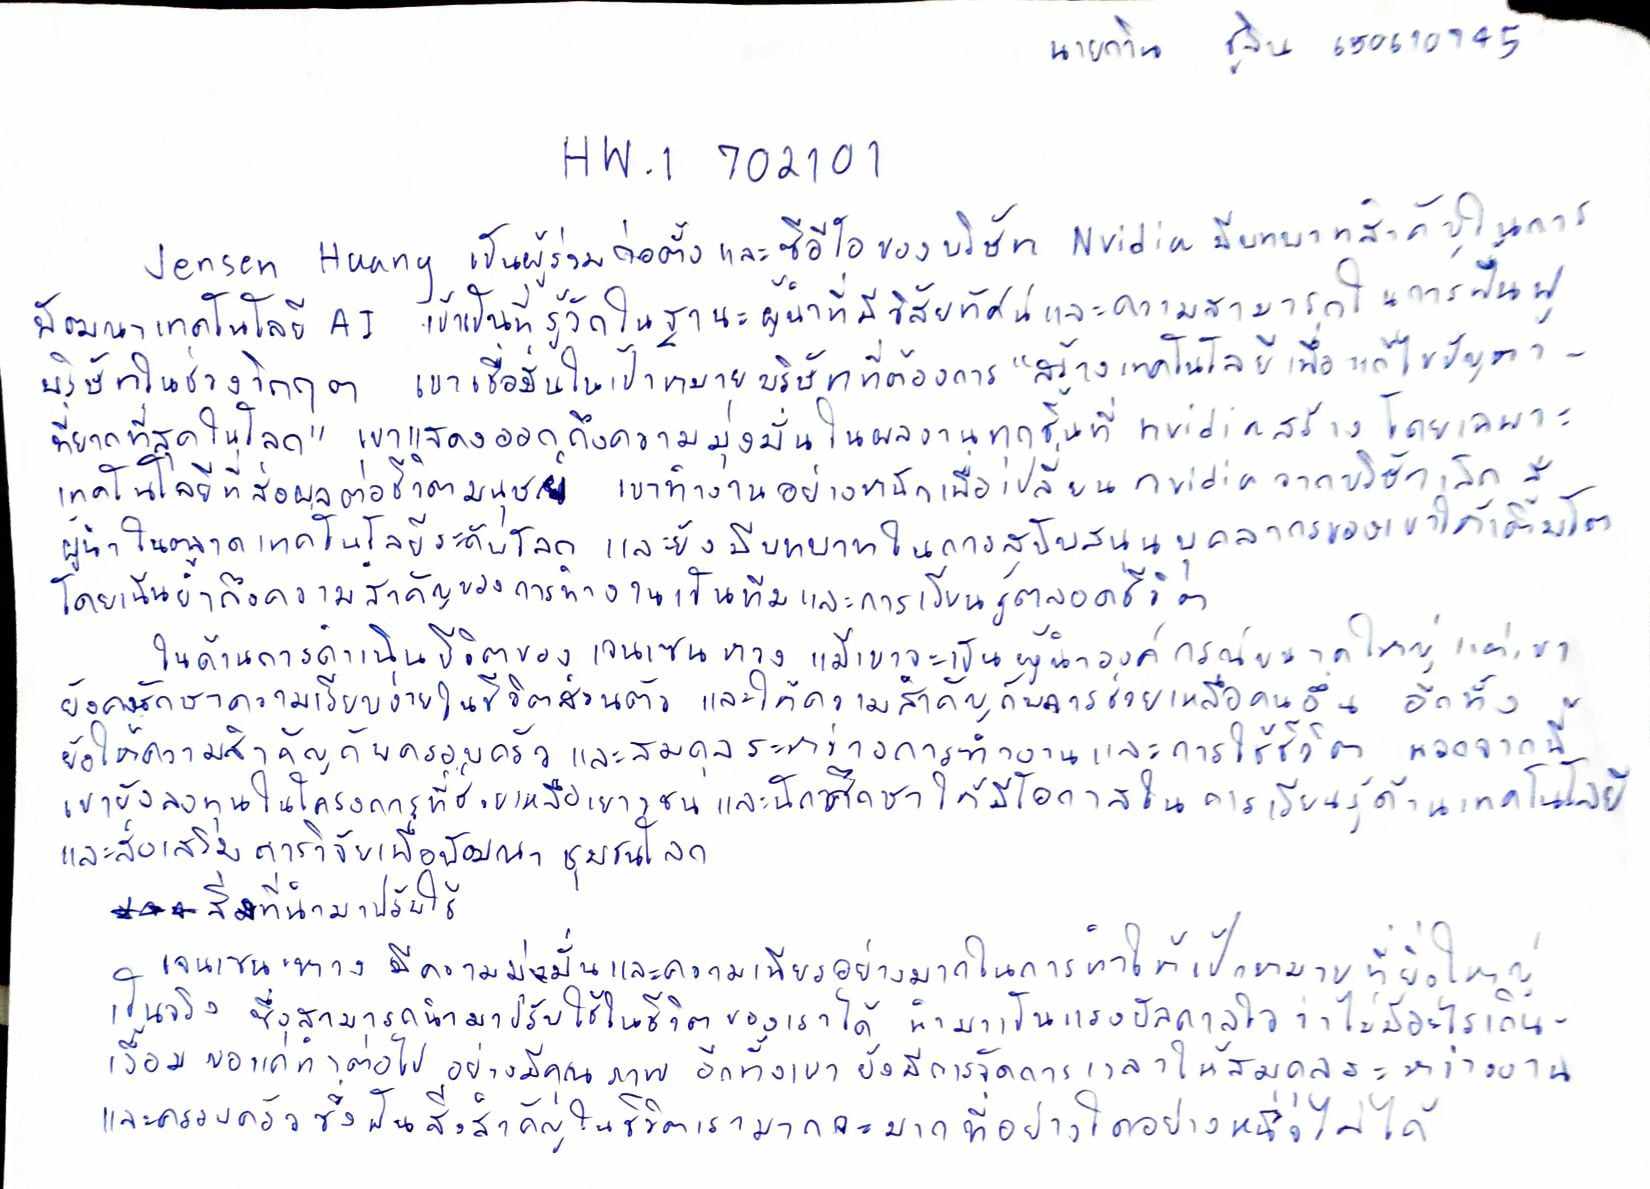 นายกวิน ชูสิน 650610745
HW.1 702101
Jensen Huang เป็นผู้ร่วมก่อตั้งและซีอีโอของบริษัท Nvidia มีบทบาทสำคัญในการ
พัฒนาเทคโนโลยี AI เข้าเป็นที่รู้จักในฐานะผู้นำที่มีวิสัยทัศน์และความสามารถในการฟื้นฟู
บริษัทในช่วงวิกฤต เขาเชื่อมั่นในเป้าหมายบริษัทที่ต้องการ "สร้างเทคโนโลยีเพื่อแก้ไขปัญหา -
ที่ยากที่สุดในโลก" เขาแสดงออกถึงความมุ่งมั่นในผลงานทุกชิ้นที่ nvidia สร้าง โดยเฉพาะ
เทคโนโลยีที่ส่งผลต่อชีวิตมนุษย์ เขาทำงานอย่างหนักเพื่อเปลี่ยน nvidia จากบริษัทเล็ก สู่
ผู้นำในตลาดเทคโนโลยีระดับโลก และยังมีบทบาทในการสนับสนุนบุคลากรของเขาให้เติบโต
โดยเน้นย้ำถึงความสำคัญของการทำงานเป็นทีมและการเรียนรู้ตลอดชีวิต
ในด้านการดำเนินชีวิตของ เจนเซน หวง แม้เขาจะเป็นผู้นำองค์กรณ์ขนาดใหญ่ แต่เขา
ยังคงรักษาความเรียบง่ายในชีวิตส่วนตัว และให้ความสำคัญกับการช่วยเหลือคนอื่น อีกทั้ง
ยังให้ความสำคัญกับครอบครัว และสมดุลระหว่างการทำงานและการใช้ชีวิต นอกจากนี้
เขายังลงทุนในโครงการที่ช่วยเหลือเยาวชน และนักศึกษาให้มีโอกาสในการเรียนรู้ด้านเทคโนโลยี
และส่งเสริมการวิจัยเพื่อพัฒนา ชุมชนโลก
สิ่งที่นำมาปรับใช้
เจนเซน หวง มีความมุ่งมั่นและความเพียรอย่างมากในการทำให้เป้าหมายที่ยิ่งใหญ่
เป็นจริง ซึ่งสามารถนำมาปรับใช้ในชีวิตของเราได้ นำมาเป็นแรงบันดาลใจว่าไม่มีอะไรเกิน-
เอื้อม ขอแค่ทำต่อไป อย่างมีคุณภาพ อีกทั้งเขา ยังมีการจัดการเวลาให้สมดุลระหว่างงาน
และครอบครัว ซึ่งเป็นสิ่งสำคัญในชีวิตเรามาก จะมากที่อย่างใดอย่างหนึ่งไม่ได้